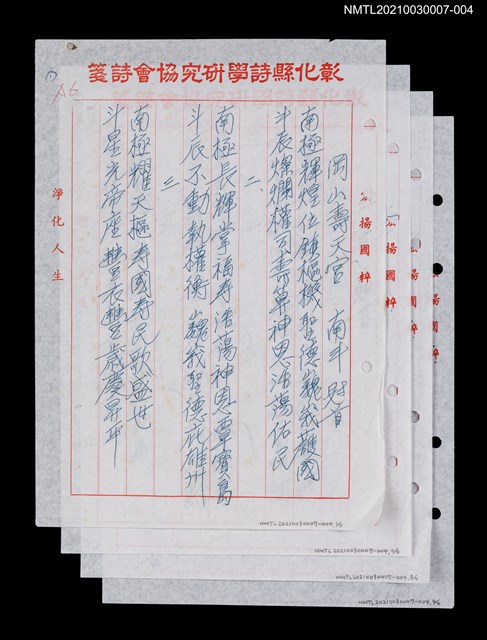 NMTL20210030007-004
彰化縣詩學研究協會詩箋
①
A6
岡山壽天宮 南斗 冠首
南極輝煌位鎮樞機聖德巍峩護國
斗辰燦爛權司壽算神恩浩蕩佑民
二、
南極長輝掌福壽浩蕩神恩覃寶島
斗辰不動執權衡巍峩聖德庇雄州
三
南極耀天樞壽國壽民歌盛世
斗星光帝座豐衣豐歲慶昇平
發揚國粹
淨化人生
揚國粹
揚國粹
揚國粹
NMTL20210030007-004,1/6
NMTL20210030007-004,2/6
NMTL20210030007-004,3/6
NMTL20210030007-004,4/6